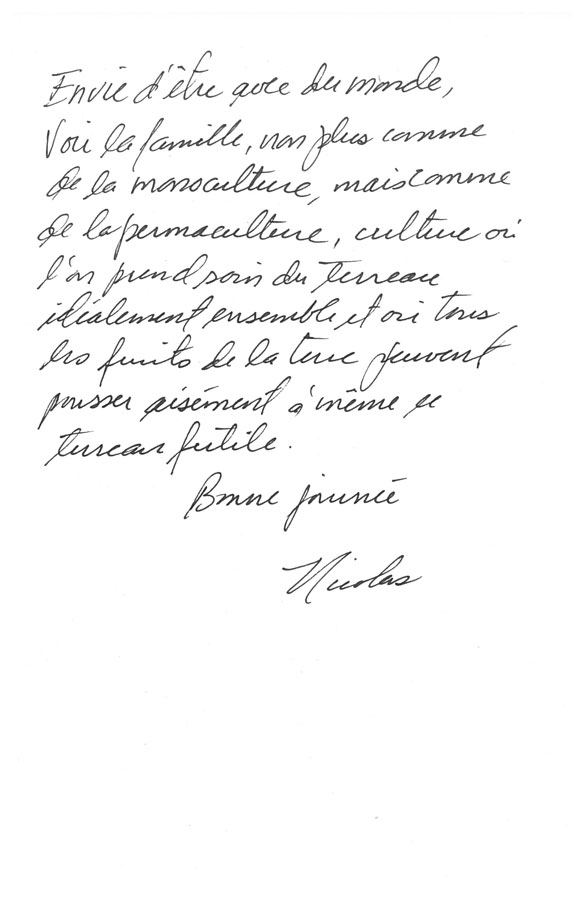 Envie d'être avec du monde,
Voir la famille, non plus comme
de la monoculture, mais comme
de la permaculture, culture où
l'on prend soin du terreau
idéalement ensemble et où tous
les fruits de la terre peuvent
pousser aisément à même ce
terreau fertile.
Bonne journée
Nicolas